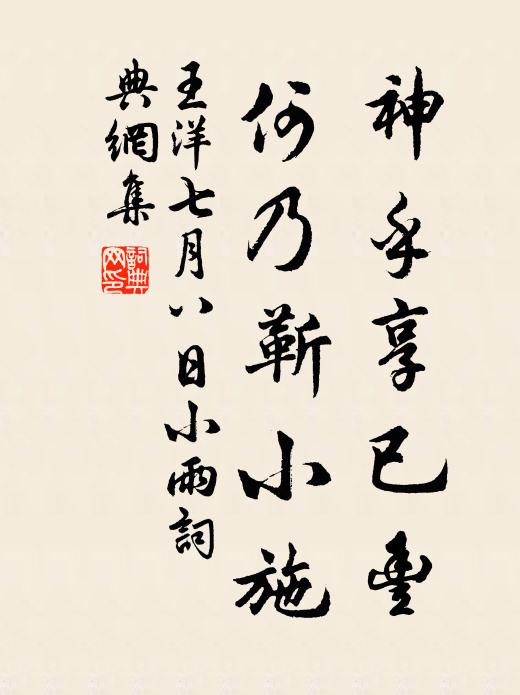 神乎享已豐
何乃靳小施
王洋七月八日小雨詞
典網集
詞典網印